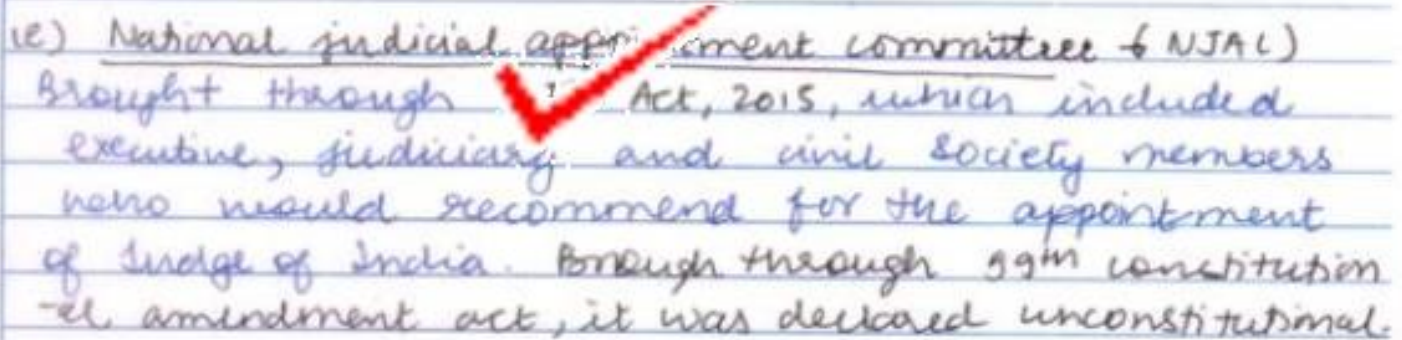 (e) National judicial appointment committee (NJAC)
Brought through Act, 2015, which included
executive, judiciary and civil society members
who would recommend for the appointment
of Judge of India. Brough through 99th constitution
-al amendment act, it was declared unconstitutional.